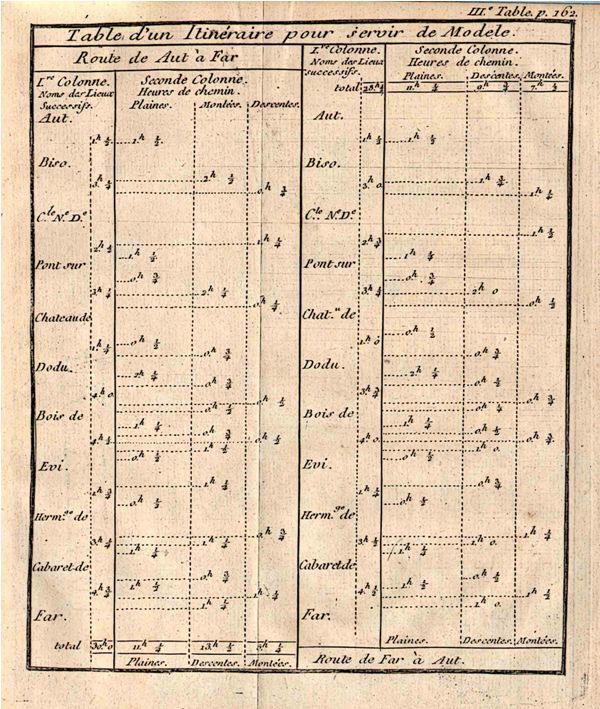 III.e Table. p. 162.
Table d'un Itinéraire pour servir de Modele.
Route de Aut à Far
I.re Colonne.
Noms des Lieux
Successifs.
Seconde Colonne.
Heures de chemin.
Plaines. Montées. Descentes.
Aut.
1.h ½ 1.h ½
Biso.
2.h ½
3.h ¼ 0.h ¾
C.le N.e D.e
1.h ¼
Pont sur
0.h ¾
3.h ¼ 2.h ¼
0.h ¼
Chateau de
0.h ½
1.h ¼ 0.h ¾
Dodu.
2.h ¼
0.h ¾
4.h 0. 0.h ½
Bois de
0.h ½
1.h ¼
0.h ¾
0.h ½
Evi.
0.h ½
1.h ½
1.h ¾
Herm.ge de
0.h ½
0.h ¾
3.h ¼ 1.h ¼
1.h ¼
Cabaret de
0.h ¾
1.h ½
4.h ¾ 1.h ¼
1.h ¼
Far.
total 30.h 0 11.h 13.h 5.h
Plaines. Descentes. Montées.
I.re Colonne.
Noms des Lieux
successifs.
Seconde Colonne.
Heures de chemin.
Plaines. Descentes. Montées.
total 28.h 11.h 9.h 7.h
Aut.
1.h ½ 1.h ½
Biso.
3.h 0 1.h ¾
1.h ¼
C.le N.e D.e
1.h ½
2.h ¾ 1.h ¼
Pont sur
0.h ¾
3.h ¼ 2.h 0
0.h ½
Chat.u de
0.h ½
1.h 0
Dodu.
2.h ¼
0.h ½
3.h ¾ 0.h ¾
Bois de
0.h ¼
1.h ¼
0.h ½
4.h 0. 0.h ¾
1.h 0.
Evi.
0.h ½
0.h ¾
1.h ¼
Herm.ge de
0.h ½
1.h ¼
3.h ½ 1.h 0.
1.h ¼
Cabaret de
0.h ½
1.h ½
4.h ½ 1.h ½
1.h 0.
Far.
Plaines. Descentes. Montées.
Route de Far à Aut.